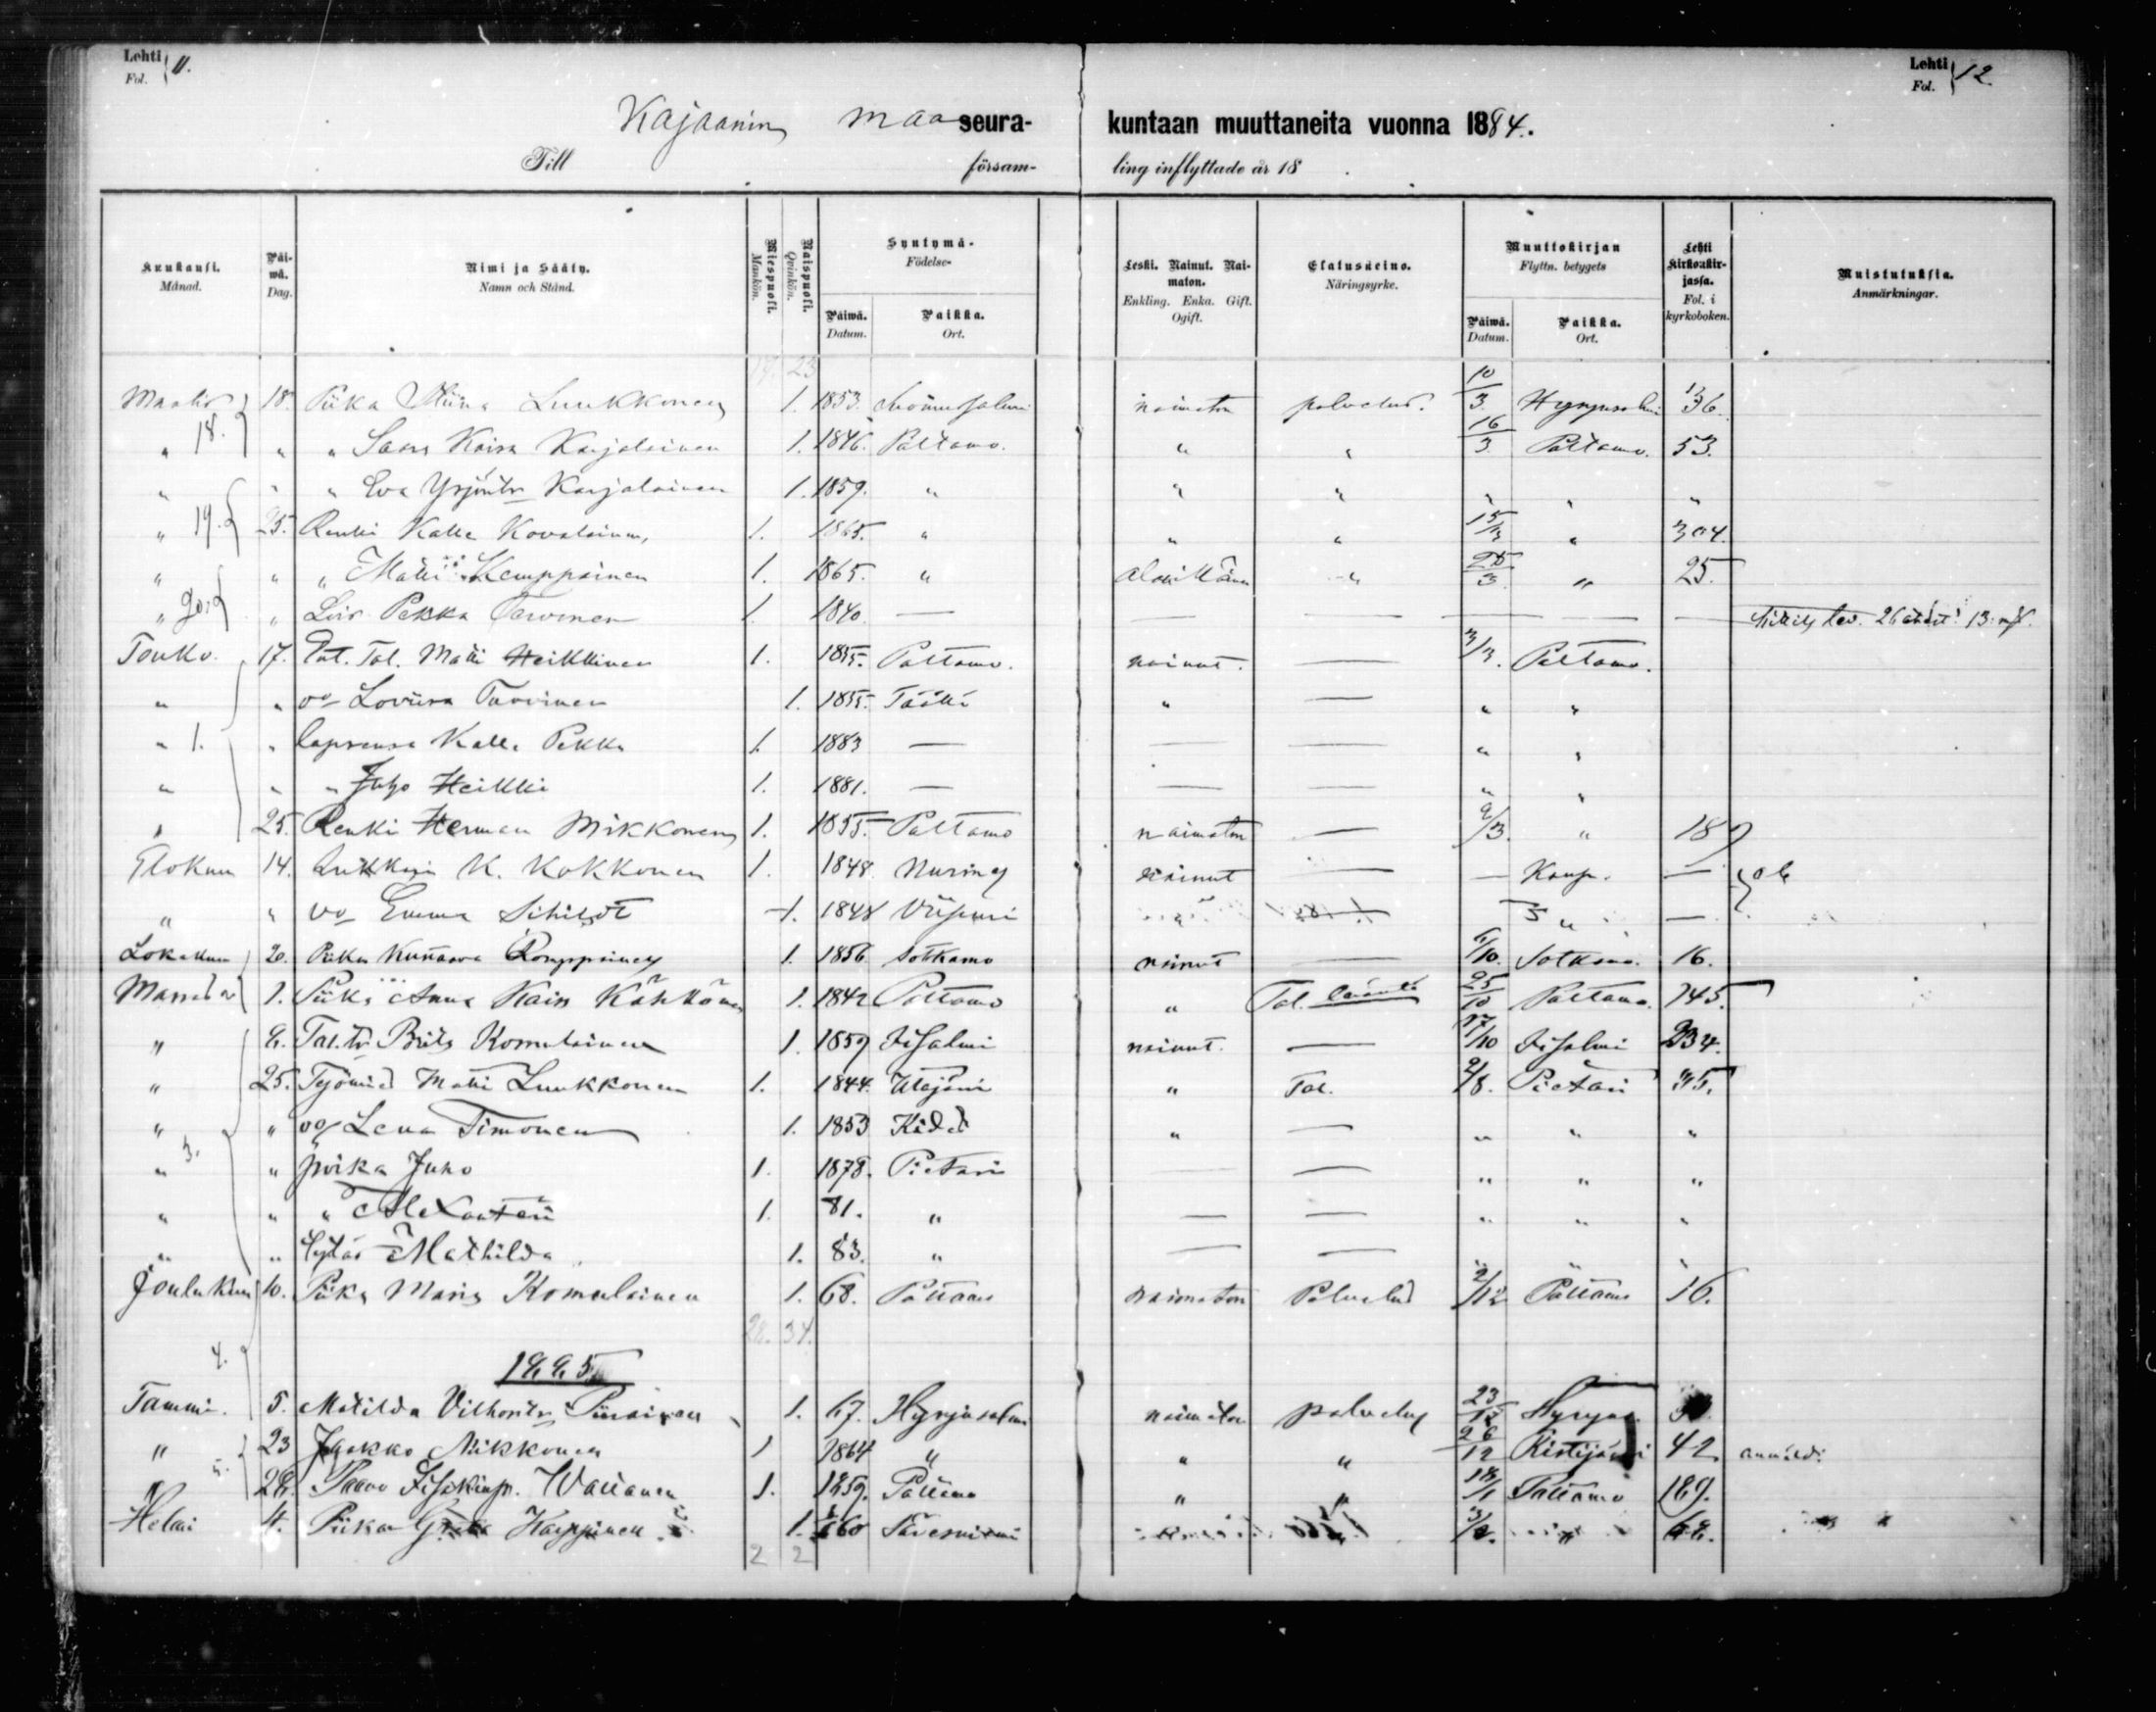 Lehti Fol. 11.
Lehti Fol. 12.
Kajaanin maaseurakuntaan muuttaneita vuonna 1884.
Till församling inflyttade år 18
Kuukausi. Månad. Päiwä. Dag. Nimi ja Sääty. Namn och Stånd. Miespuoli. Mankön. Naispuoli. Qvinkön. Syntymä- Födelse- Päiwä. Datum. Paikka. Ort. Leski. Nainut. Naimaton. Enkling. Enka. Gift. Ogift. Elatuskeino. Näringsyrke. Muuttokirjan Flyttn. betygets Päiwä. Datum. Paikka. Ort. Lehti kirkonkirjassa. Fol. i kyrkoboken. Muistutuksia. Anmärkningar.
19. 23
Maalis 18. Piika Stiina Luukkonen 1. 1853. Suomussalmi naimaton palvelus. 10/3 Hyrynsalmi 136.
" 18. " " Saara Kaisa Karjalainen 1. 1846. Paltamo. " " 16/3 Paltamo. 53.
" " " Eva Yrjöntr Karjalainen 1. 1859. " " " " " "
" 19. 25. Renki Kalle Kovalainen, 1. 1865. " " " 15/3 " 304.
" " " Matti Kemppainen 1. 1865. " " 25/3 " 25.
" 20. " Lois Pekka Tervonen 1. 1840. — — — — — —
Touko. 17. Tal. Matti Heikkinen 1. 1855. Paltamo. nainut. — 3/3. Paltamo.
" " vo Loviisa Tervonen 1. 1855. Täällä " — " "
" 1. " lapsensa Kalle Pekka 1. 1883 — — — " "
" " " Juho Heikki 1. 1881. — — — " "
" 25. Renki Herman Mikkonen 1. 1855. Paltamo naimaton — 9/3. " 189
Elokuu 14. K. Kokkonen 1. 1848. Nurmes nainut — — Kaup. —
" " vo Emma Schildt 1. 1848 Viipuri " " —
Lokakuu 20. Piika Kunnaova Romppainen 1. 1856. Sotkamo nainut — 6/10. Sotkamo. 16.
Marras 1. Piika Anna Kaisa Kähkönen 1. 1842 Paltamo " Tal. 25/10 Paltamo. 145.
" 9. Tal. tr Briita Komulainen 1. 1859 Iisalmi nainut. — 17/10 Iisalmi 234.
" 25. Työmies Matti Luukkonen 1. 1844. Utajärvi " Tal. 2/8. Pietari 35.
" " vo Lena Timonen 1. 1853 Kides " — " " "
" 3. " poika Juho 1. 1878. Pietari — — " " "
" " " Alexanteri 1. 81. " — — " " "
" " tytär Mathilda 1. 83. " — — " " "
Joulukuu 10. Piika Maria Komulainen 1. 68. Paltamo naimaton Palvelus 2/12 Paltamo 16.
28. 34.
4. 1885
Tammi. 5. Matilda Vilhontr Piirainen 1. 67. Hyrynsalmi naimaton palvelus 23/12 Hyryns.
" 23 Jaakko Mikkonen 1 1864 " " " 26/12 Ristijärvi 42
" 28. Paavo Iisakinp. Wallanen 1. 1859. Paltamo " " 18/1 Paltamo 189.
Helmi 4. Piika Karppinen 1. 60 Säresniemi 3/2. "
2 2